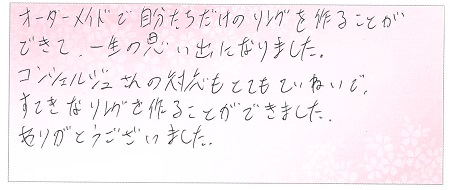 オーダーメイドで自分たちだけのリングを作ることが
できて、一生の思い出になりました。
コンシェルジュさんの対応もとてもていねいで、
すてきなリングを作ることができました。
ありがとうございました。